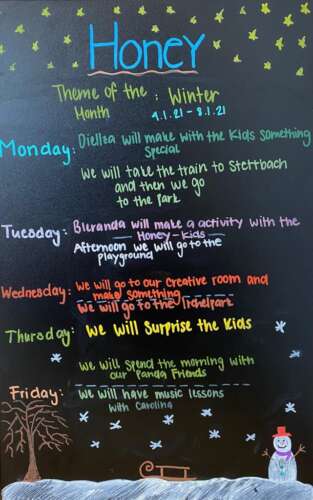 Honey
Theme of the : Winter
Month 4.1.21 - 8.1.21
Monday: Diellza will make with the Kids something
Special
We will take the train to Stettbach
and then we go
to the Park
Tuesday: Bluranda will make a activity with the
Honey-Kids
Afternoon we will go to the
playground
Wednesday: We will go to our Creative room and
make something
We will go to the Irchelpark
Thursday: We will Surprise the Kids
We will Spend the morning with
our Panda Friends
Friday: We will have music lessons
with Carolina